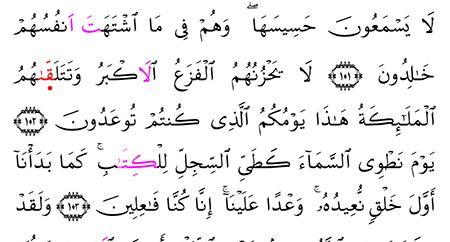 لَا يَسْمَعُونَ حَسِيسَهَا ۖ وَهُمْ فِى مَا ٱشْتَهَتَ اَنفُسُهُمْ
خَـٰلِدُونَ ١٠١ لَا يَحْزُنُهُمُ ٱلْفَزَعُ ٱلَاكْبَرُ وَتَتَلَقَّىٰهُمُ
ٱلْمَلَـٰٓئِكَةُ هَـٰذَا يَوْمُكُمُ ٱلَّذِى كُنتُمْ تُوعَدُونَ ١٠٢
يَوْمَ نَطْوِى ٱلسَّمَآءَ كَطَىِّ ٱلسِّجِلِّ لِلْكِتَـٰبِ ۚ كَمَا بَدَأْنَآ
أَوَّلَ خَلْقٍ نُّعِيدُهُۥ ۚ وَعْدًا عَلَيْنَآ ۚ إِنَّا كُنَّا فَـٰعِلِينَ ١٠٣ وَلَقَدْ